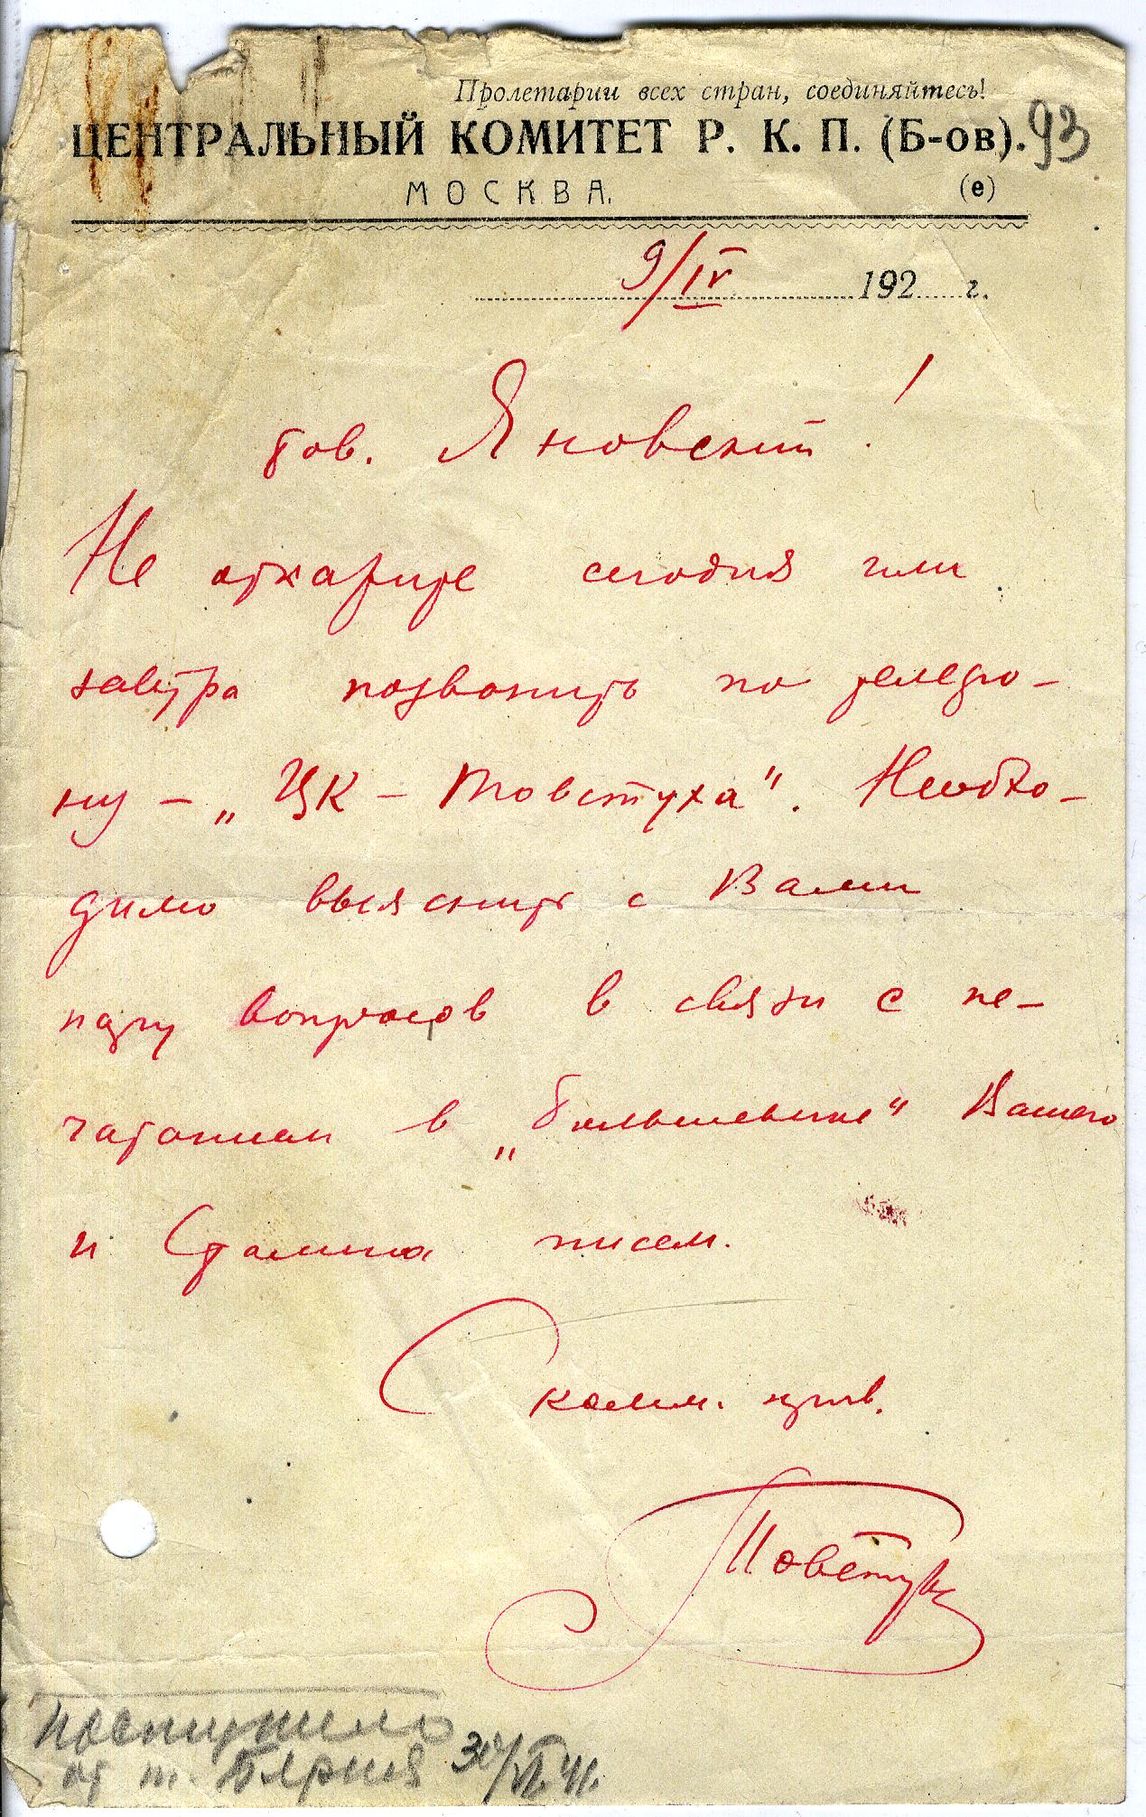 Пролетарии всех стран, соединяйтесь!
ЦЕНТРАЛЬНЫЙ КОМИТЕТ Р. К. П. (Б-ов).
93
МОСКВА.
(е)
9/IV 192 г.
Тов. Яновский!
Не откажите сегодня или
завтра позвонить по телефо-
ну – „ЦК – Товстуха". Необхо-
димо выяснить с Вами
пару вопросов в связи с пе-
чатанием в „Большевике" Вашего
и Сталина писем.
С комм. прив.
Товстуха
Поступило
от т. 30/VI 41.